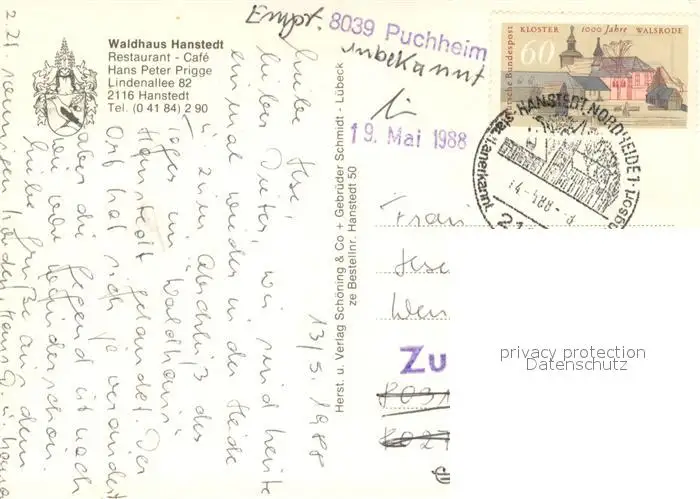 Waldhaus Hanstedt
Restaurant - Café
Hans Peter Prigge
Lindenallee 82
2116 Hanstedt
Tel. (0 41 84) 2 90
13/5. 1988
Liebe
lieber Dieter, wir sind heute
einmal wieder in der Heide
u. zum Abschluß des
Tages im "Waldhaus"
Hanstedt gelandet. Der
Ort hat sich ja verändert
aber die Gegend ist nach
wie vor wunderschön.
Liebe Grüße aus dem
Herst. u. Verlag Schöning & Co + Gebrüder Schmidt - Lübeck
ze Bestellnr. Hanstedt 50
Empf. 8039 Puchheim
unbekannt
19. Mai 1988
KLOSTER 1000 Jahre WALSRODE
60
Deutsche Bundespost
HANSTEDT, NORDHEIDE 1
21
Frau
Zu
8031
privacy protection
Datenschutz